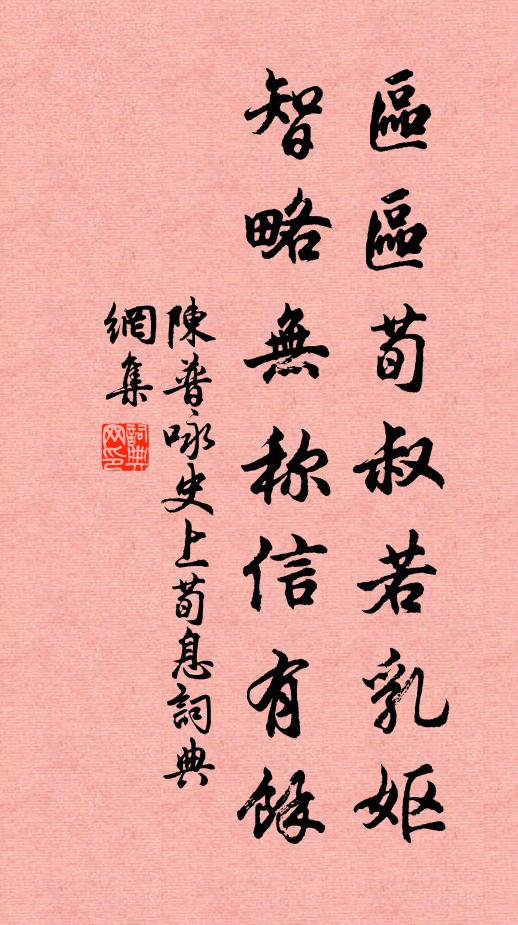 區區荀叔若乳姬
智略無称信有餘
陳普咏史上荀息詞典
網集
詞典网印